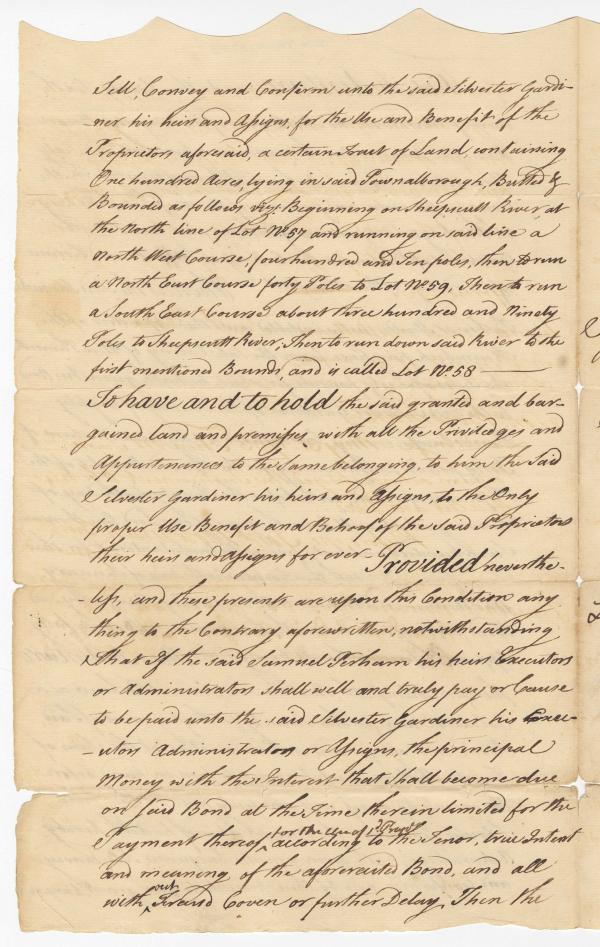 Sell, Convey and Confirm unto the said Silvester Gardi-
-ner his heirs and Assigns, for the Use and Benefit of the
Proprietors aforesaid, a certain tract of Land, containing
One hundred Acres, lying in said Pownalborough, Butted &
Bounded as follows, vizt. Beginning on Sheepscutt River, at
the North line of Lot No. 57 and running on said line a
North West Course, four hundred and Ten poles, then to run
a North East Course forty Poles to Lot No. 59, Then to run
a South East Course about three hundred and Ninety
Poles to Sheepscutt River, Then to run down said River to the
first mentioned Bounds, and is called Lot No. 58 —
To have and to hold the said granted and bar-
gained land and premisses, with all the Priviledges and
Appurtenances to the Same belonging, to him the Said
Silvester Gardiner his heirs and Assigns, to the Only
proper Use Benefit and Behoof of the Said Proprietors
their heirs and Assigns for ever - Provided neverthe-
-less, and these presents are upon this Condition any
thing to the Contrary aforewritten, notwithstanding
that If the said Samuel Perham his heirs Executors
or Administrators shall well and truly pay or Cause
to be paid unto the said Silvester Gardiner his Exec-
-utors Administrators or Assigns, the principal
Money with the Interest that shall become due
on said Bond at the Time therein limited for the
for the use of sd. Propr.
Payment thereof ^ according to the Tenor, true Intent
and meaning of the aforerecited Bond, and all
with^out Fraud Coven or further Delay, Then the